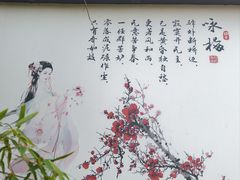 咏梅
驿外断桥边
寂寞开无主
已是黄昏独自愁
更著风和雨
无意苦争春
一任群芳妒
零落成泥碾作尘
只有香如故